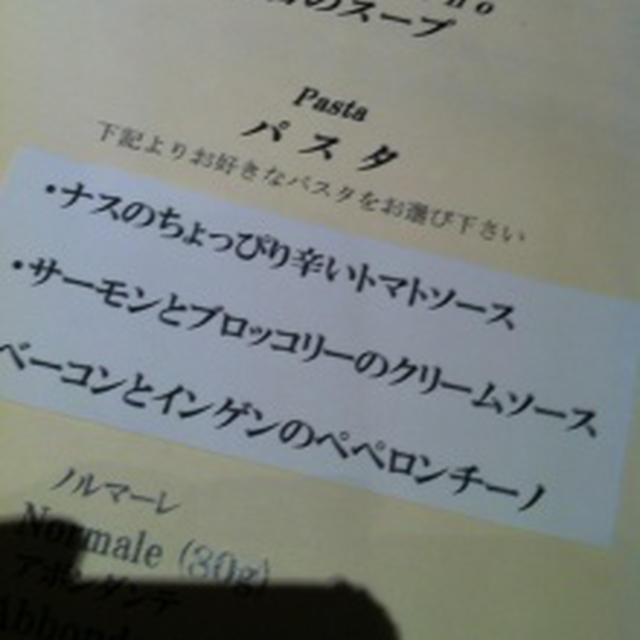 のスープ
Pasta
パスタ
下記よりお好きなパスタをお選び下さい
・ナスのちょっぴり辛いトマトソース
・サーモンとブロッコリーのクリームソース
ベーコンとインゲンのペペロンチーノ
ノルマーレ
Normale (30g)
アボンダンテ